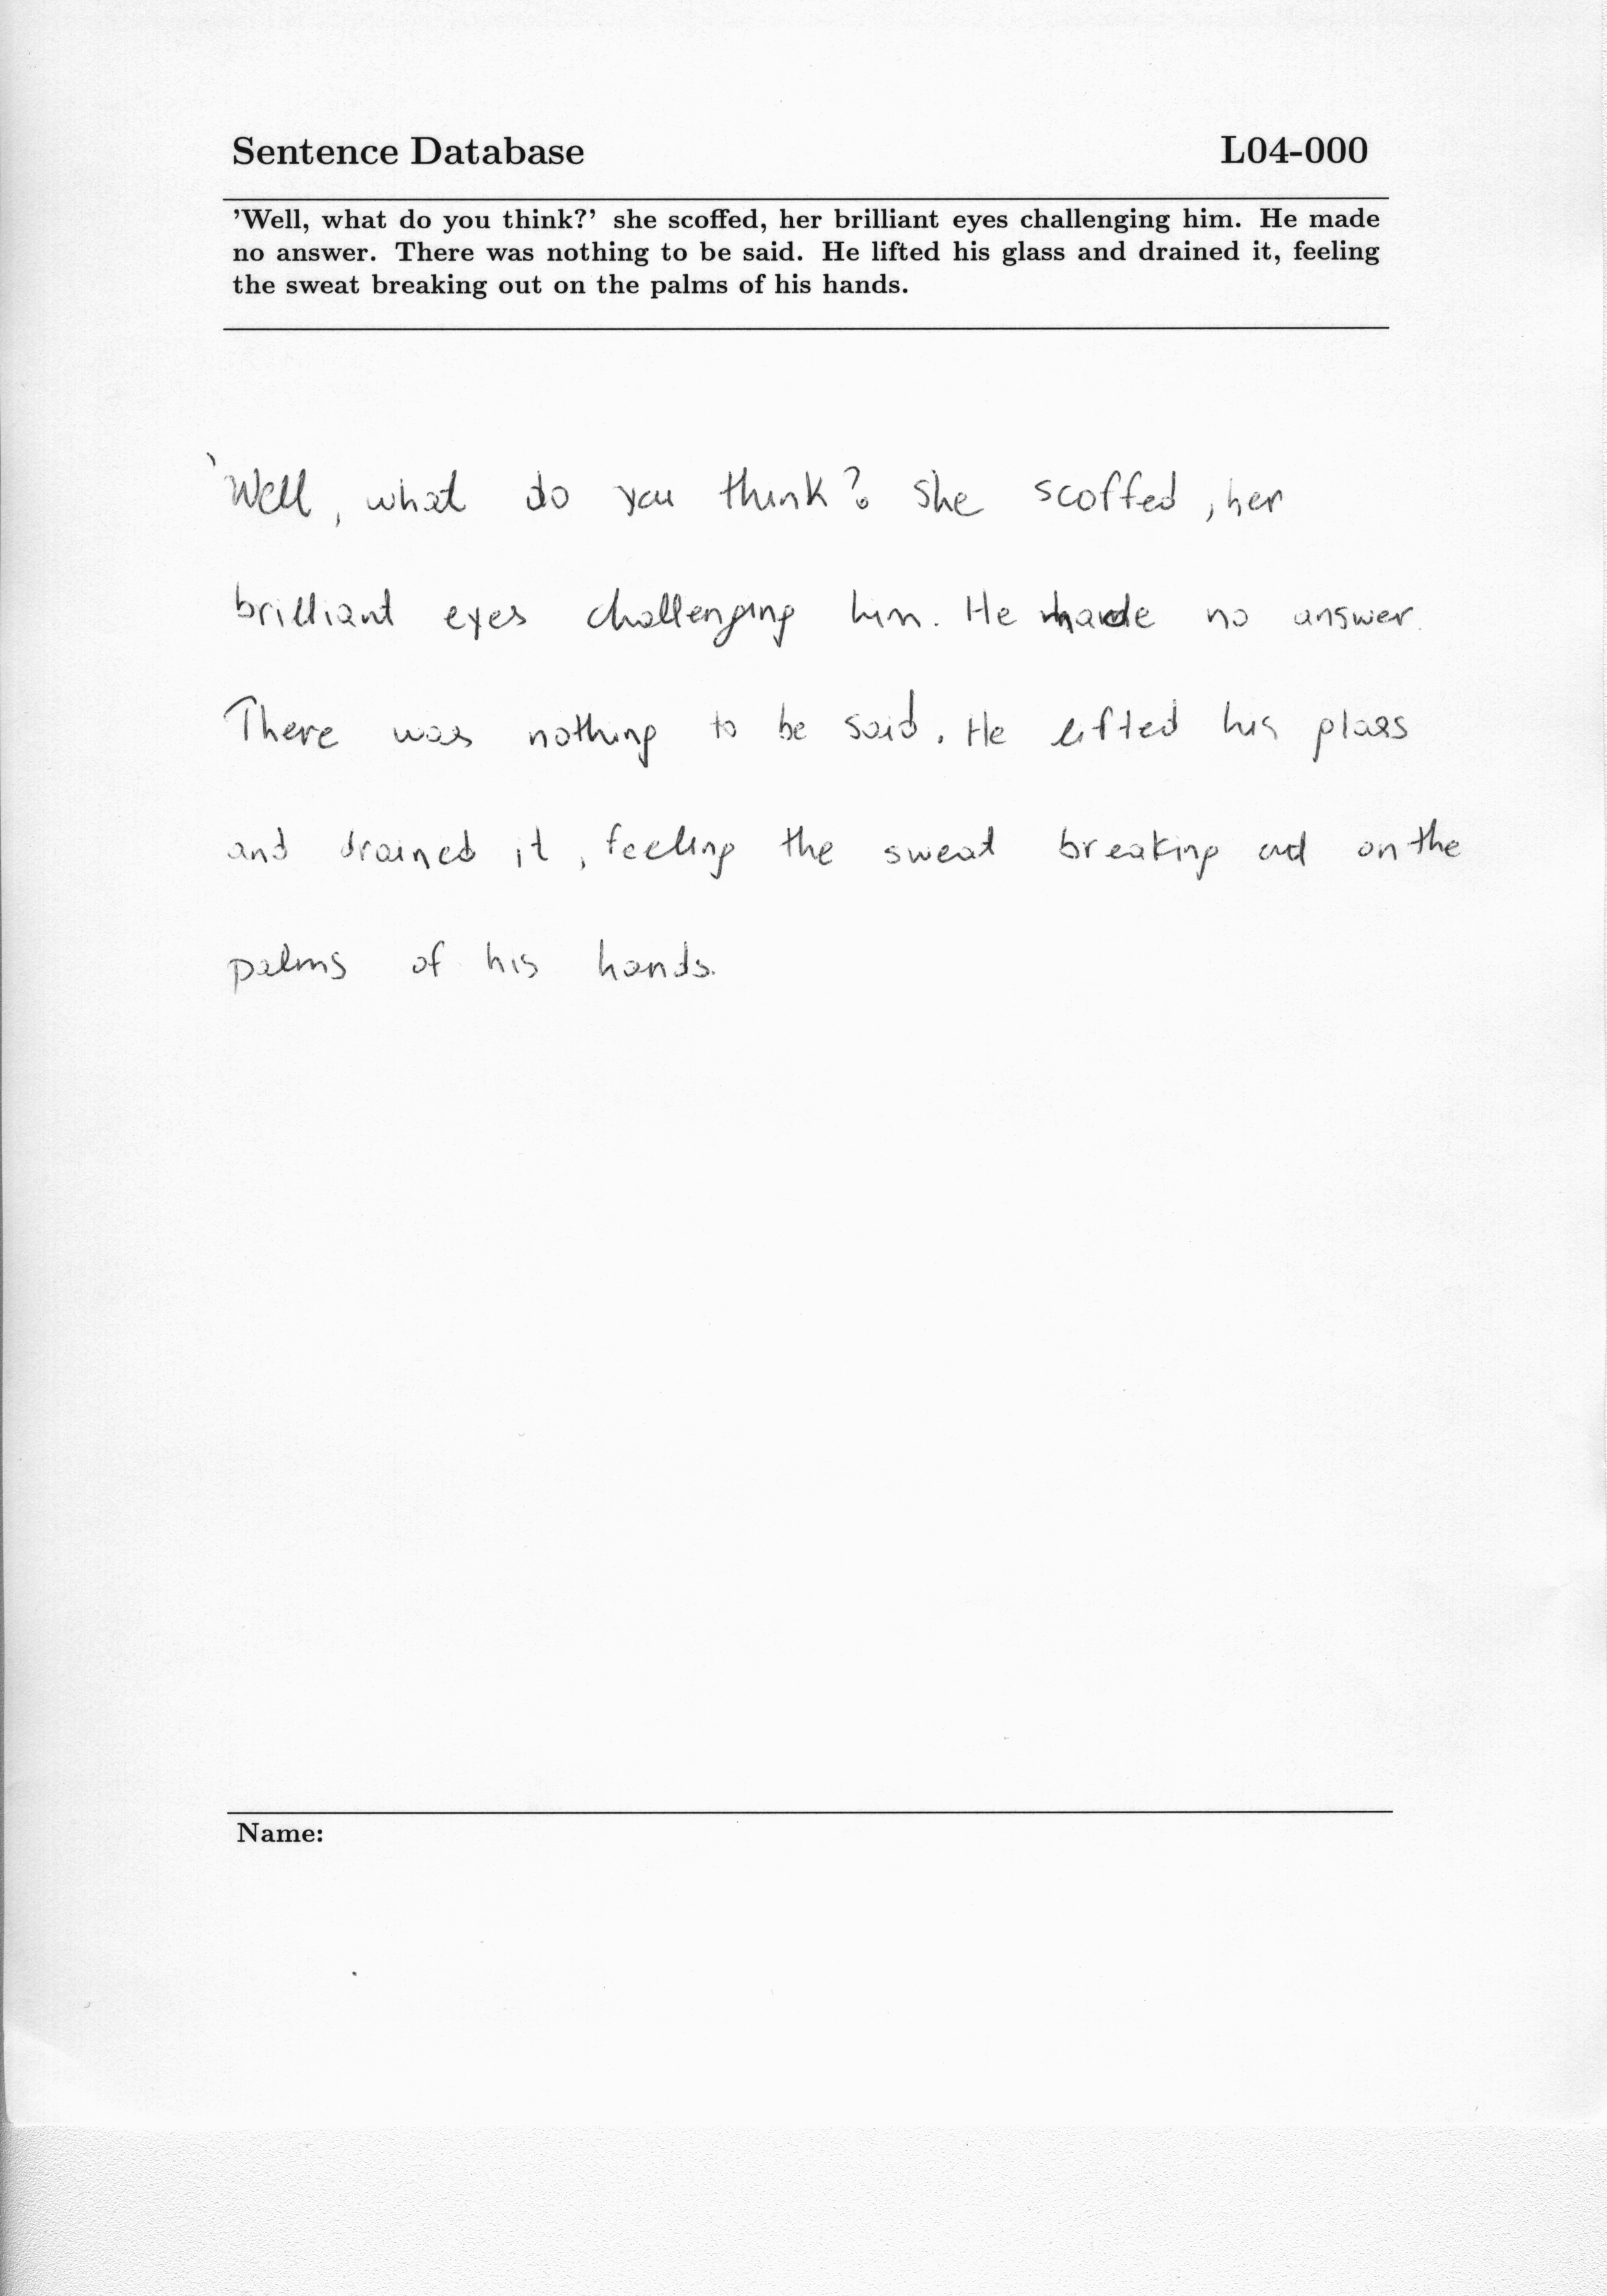 Sentence Database L04-000
'Well, what do you think?' she scoffed, her brilliant eyes challenging him. He made
no answer. There was nothing to be said. He lifted his glass and drained it, feeling
the sweat breaking out on the palms of his hands.
'Well, what do you think? she scoffed, her
brilliant eyes challenging him. He made no answer.
There was nothing to be said. He lifted his glass
and drained it, feeling the sweat breaking out on the
palms of his hands.
Name: